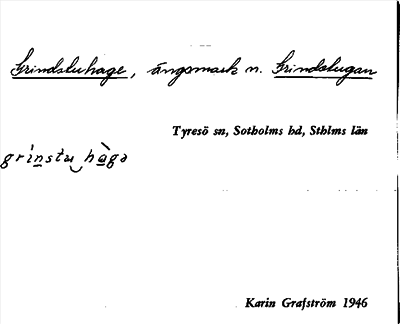 Grindstuhage, ängsmark n. Grindstugan
Tyresö sn, Sotholms hd, Sthlms län
grìnstu hàgə
Karin Grafström 1946